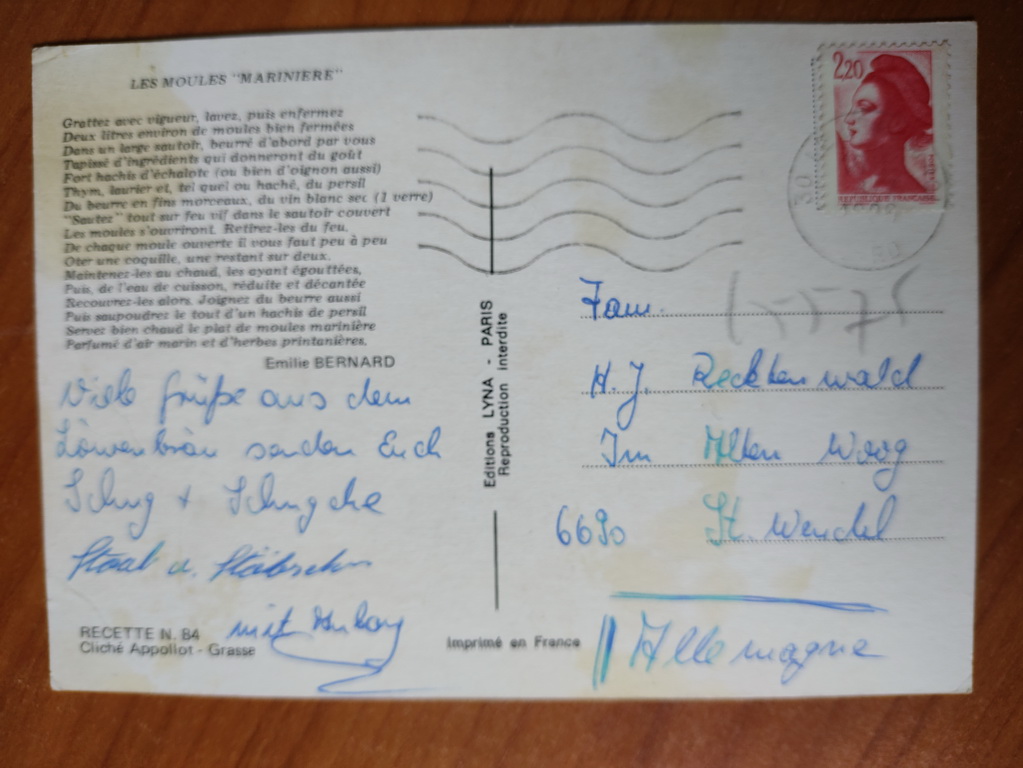 LES MOULES "MARINIERE"
Grattez avec vigueur, lavez, puis enfermez
Deux litres environ de moules bien fermées
Dans un large sautoir, beurré d'abord par vous
Tapissé d'ingrédients qui donneront du goût
Fort hachis d'échalote (ou bien d'oignon aussi)
Thym, laurier et, tel quel ou haché, du persil
Du beurre en fins morceaux, du vin blanc sec (1 verre)
"Sautez" tout sur feu vif dans le sautoir couvert
Les moules s'ouvriront. Retirez-les du feu.
De chaque moule ouverte il vous faut peu à peu
Oter une coquille, une restant sur deux.
Maintenez-les au chaud, les ayant égouttées,
Puis, de l'eau de cuisson, réduite et décantée
Recouvrez-les alors. Joignez du beurre aussi
Puis saupoudrez le tout d'un hachis de persil
Servez bien chaud le plat de moules marinière
Parfumé d'air marin et d'herbes printanières.
Emilie BERNARD
Viele Grüße aus dem
Löwenbräu senden Euch
Schug + Schugche
Staal u.
mit
RECETTE N. 84
Cliché Appollot - Grasse
Editions LYNA - PARIS
Reproduction interdite
Imprimé en France
2,20
REPUBLIQUE FRANÇAISE
Fam.
H. J. Recktenwald
Im Alten Woog
6690 St. Wendel
Allemagne